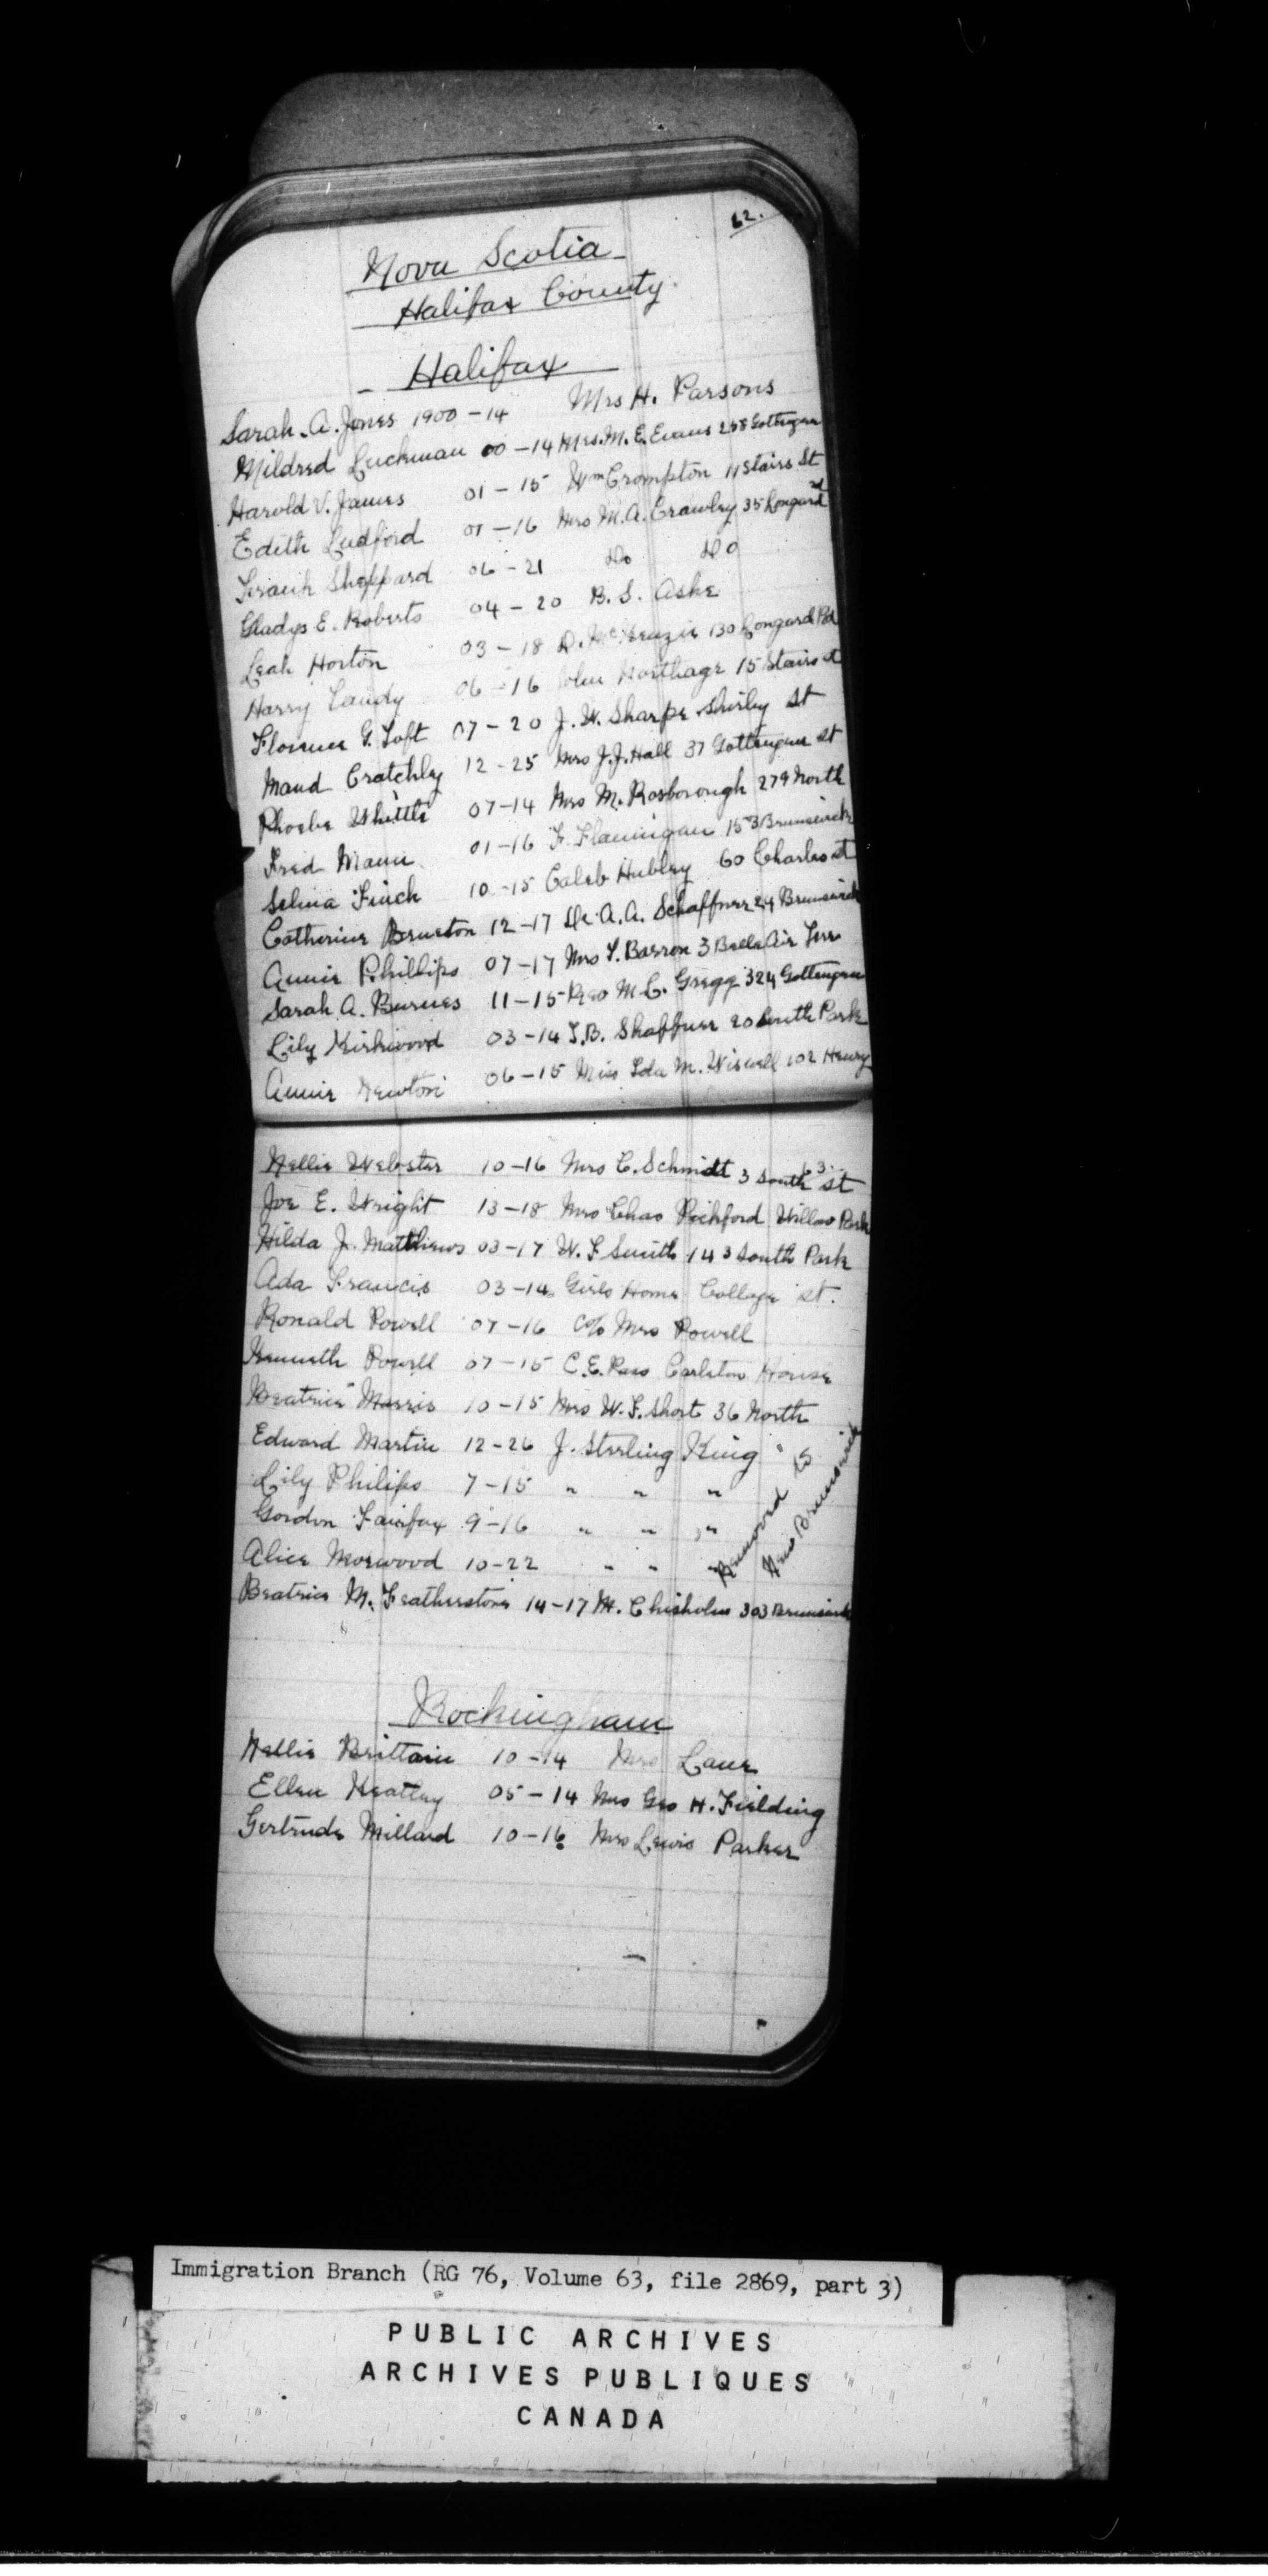 62.
Nova Scotia
Halifax County.
Halifax
Sarah. A. Jones 1900-14 Mrs H. Parsons
Mildred Luckman 00-14 Mrs. M. E. Evans 258 Gottingen
Harold V. James 01-15 Wm Crompton 11 Stairs St
Edith Ludford 01-16 Mrs M. A. Crawley 35 Longard Rd
Sheppard 06-21 Do Do
Gladys E. Roberts 04-20 B. S. Aske
Leah Horton 03-18 D. McKenzie 130 Longard Rd
Harry 06-16 John 15 Stairs st
Florence G. Toft 07-20 J. W. Sharpe Shirley St
Maud Cratchly 12-25 Mrs J. J. Hall 37 Gottingen st
Phoebe Whittle 07-14 Mrs M. Rosborough 279 North
Fred Mann 01-16 F. Flannigan 153 Brunswick
Selina Finch 10-15 Caleb Hubley 60 Charles st
Catherine Brueton 12-17 Dr A. A. Schaffner 24 Brunswick
Annie Phillips 07-17 Mrs T. Barron 3 Belle Air Terr
Sarah A. Burnes 11-15 Geo M. C. Gregg 324 Gottingen
Lily Kirkwood 03-14 I. B. Shaffner 20 South Park
Annie Newton 06-15 Miss Ida M. Wiswell 102 Henry
63.
Nellie Webster 10-16 Mrs C. Schmidt 3 South St
Joe E. Wright 13-18 Mrs Chas Pickford Willow Park
Hilda J. Matthews 03-17 W. F Smith 143 South Park
Ada Francis 03-14 Girls Home College st.
Ronald Powell 07-16 c/o Mrs Powell
Kenneth Powell 07-15 C. E. Carleton House
Beatrice Morris 10-15 Mrs W. F. Short 36 North
Edward Martin 12-26 J. Sterling King
Lily Philips 7-15 " " "
Gordon Fairfax 9-16 " " "
Alice Morwood 10-22 " " "
Removed to
New Brunswick
Beatrice M. Featherstone 14-17 M. Chisholm 303 Brunswick
Rockingham
Nellie Brittain 10-14 Mrs Lane
Ellen Keatley 05-14 Mrs Geo H. Fielding
Gertrude Millard 10-16 Mrs Lewis Parker
Immigration Branch (RG 76, Volume 63, file 2869, part 3)
PUBLIC ARCHIVES
ARCHIVES PUBLIQUES
CANADA